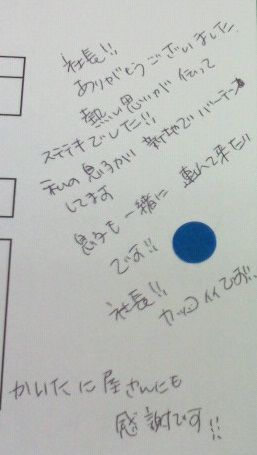 社長!!
ありがとうございました
熱い思いが 伝って
ステキでした!!
私の息子が 新地で バーテン
してます
息子も一緒に 連れて来たい
です!!
社長!! カッコイイです!!
かいたに屋さんにも
感謝です!!